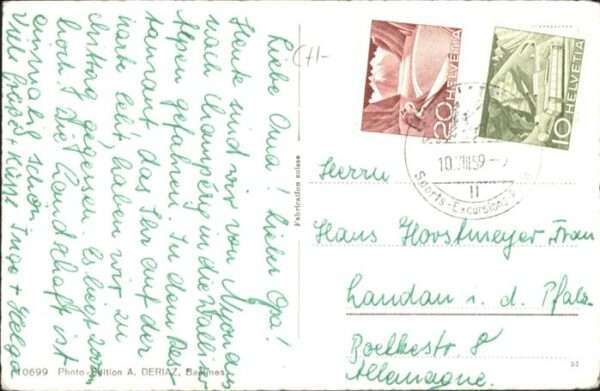 Liebe Oma! Lieber Opa!
Heute sind wir von Nyon aus
nach Champéry in die Walliser
Alpen gefahren. In dem Res-
taurant das Ihr auf der
karte seht haben wir zu
Mittag gegessen. Es liegt 2000 m
hoch! Die Landschaft ist
einmalig schön
Viel Grüße + Küsse Ingo + Helga
CH-
HELVETIA
20
HELVETIA
10
10. VIII 59
11
Sports-Excursions
Fabrication suisse
Herrn
Hans Horstmeyer Frau
Landau i. d. Pfalz
Roelkestr. 8
Allemagne.
10699 Photo-Edition A. DERIAZ, Baulmes